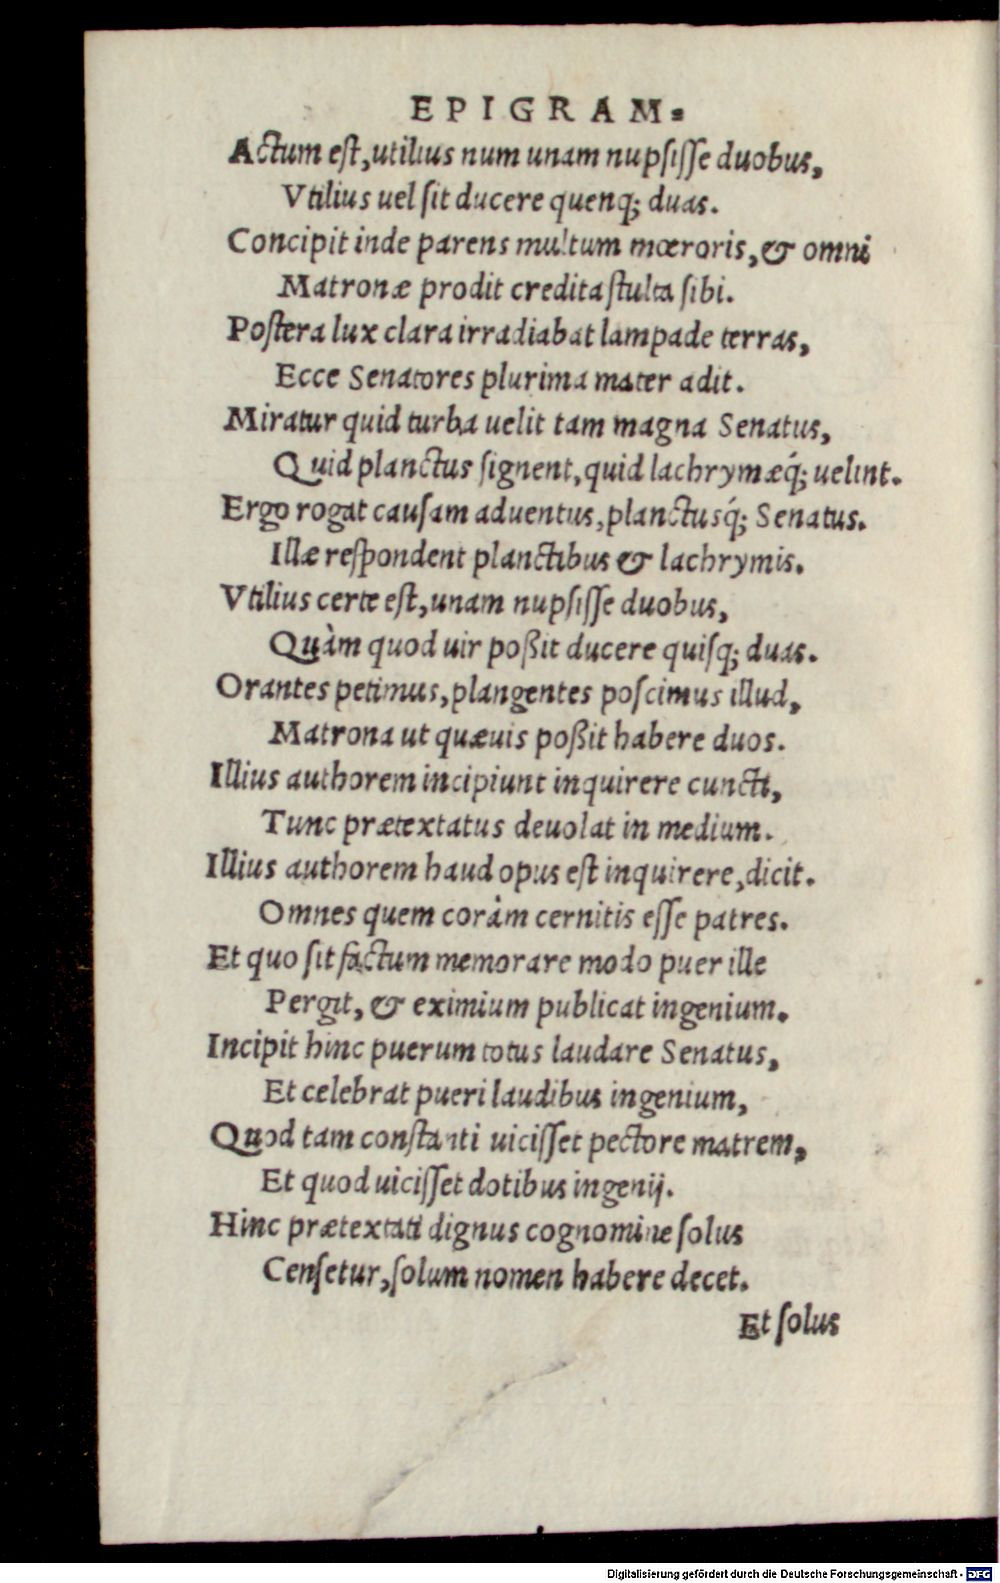 EPIGRAM.
Actum est, utilius num unam nupsisse duobus,
Vtilius uel sit ducere quenq; duas.
Concipit inde parens multum mœroris, & omni
Matronæ prodit credita stulta sibi.
Postera lux clara irradiabat lampade terras,
Ecce Senatores plurima mater adit.
Miratur quid turba uelit tam magna Senatus,
Quid planctus signent, quid lachrymæq́; uelint.
Ergo rogat causam aduentus, planctusq́; Senatus.
Illæ respondent planctibus & lachrymis.
Vtilius certe est, unam nupsisse duobus,
Quàm quod uir poßit ducere quisq; duas.
Orantes petimus, plangentes poscimus illud,
Matrona ut quæuis poßit habere duos.
Illius authorem incipiunt inquirere cuncti,
Tunc prætextatus deuolat in medium.
Illius authorem haud opus est inquirere, dicit.
Omnes quem coràm cernitis esse patres.
Et quo sit factum memorare modo puer ille
Pergit, & eximium publicat ingenium.
Incipit hinc puerum totus laudare Senatus,
Et celebrat pueri laudibus ingenium,
Quod tam constanti uicisset pectore matrem,
Et quod uicisset dotibus ingenij.
Hinc prætextati dignus cognomine solus
Censetur, solum nomen habere decet.
Et solus
Digitalisierung gefördert durch die Deutsche Forschungsgemeinschaft - DFG